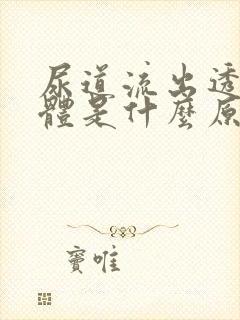 尿道流出透
體是什麼原
竇唯